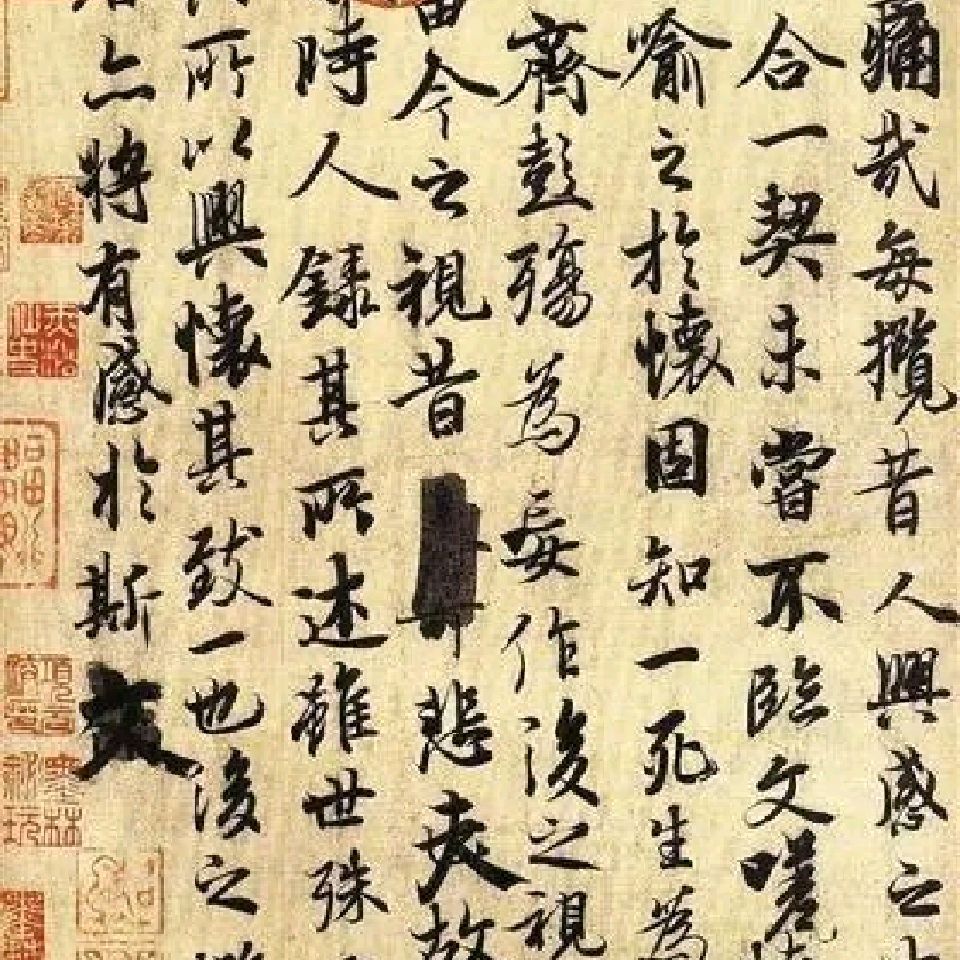 痛哉每攬昔人興感之
合一契未嘗不臨文嗟
喻之於懷固知一死生為
齊彭殤為妄作後之視
由今之視昔悲夫故
時人錄其所述雖世殊
所以興懷其致一也後之
亦將有感於斯文